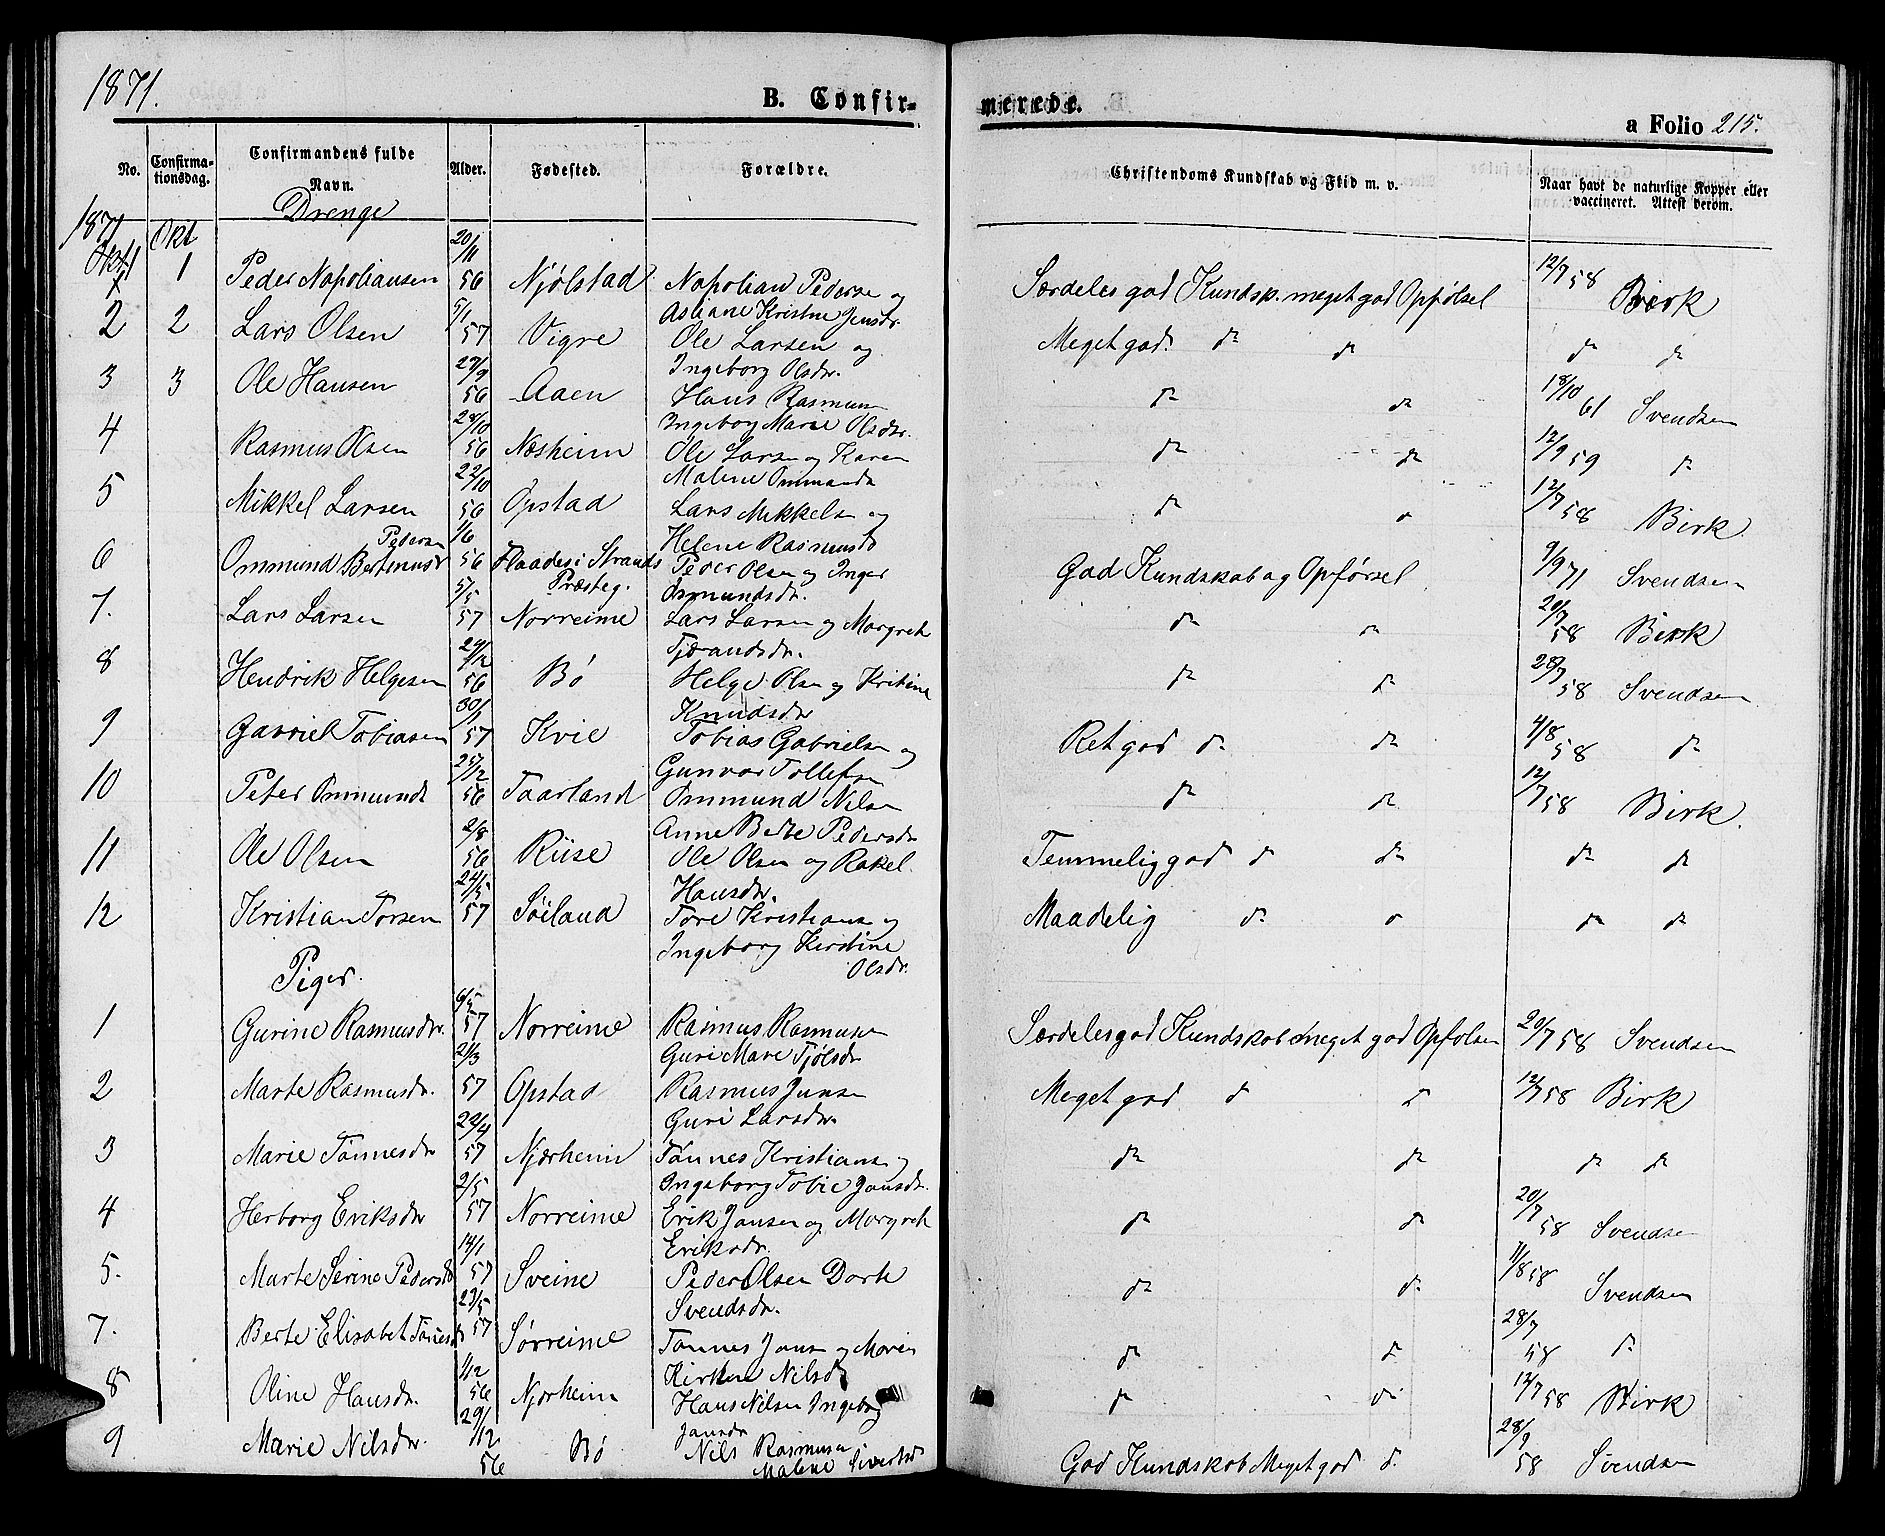 1871.
B. Confir-
merede.
a Folio 215.
No.
Confirma-
tionsdag.
Confirmandens fulde
Navn.
Alder.
Fødested.
Forældre.
Christendoms Kundskab og Flid m. v.
Naar havt de naturlige Kopper eller
vaccineret. Attest derom.
Drenge
1871 Okt
1 1 Peder Napoliansen 20/11 56 Njølstad Napolian Pederse og
Asliane Kristine Jensdr. Særdeles god Kundsk. meget god Opførsel 12/7 58 Birk
2 2 Lars Olsen 5/1 57 Vigre Ole Larsen og
Ingeborg Olsdr. Meget god do do do do
3 3 Ole Hansen 27/9 56 Aaen Hans Rasmusen
Ingeborg Marie Olsdr. do do 18/10 61 Svendsen
4 Rasmus Olsen 28/10 56 Næsheim Ole Larsen og Karen
Malene Ommundsdr do do 12/9 59 do
5 Mikkel Larsen 22/10 56 Opstad Lars Mikkelsen og
Helene Rasmusdr do do 12/7 58 Birk
6 Ommund Bertinius Pedersen 1/6 56 Flaades i Strands
Præsteg. Peder Olsen og Inger
Osmundsdr. God Kundskab og Opførsel 9/9 71 Svendsen
7. Lars Larsen 5/5 57 Norreime Lars Larsen og Margrete
Tjørandsdr. do do 20/7 58 Birk
8 Hendrik Helgesen 29/12 56 Bø Helge Olsen og Kristine
Knudsdr do do 28/7 58 Svendsen
9 Gabriel Tobiasen 30/1 57 Kvie Tobias Gabrielsen og
Gunvor Tollefsen Ret god do do 4/8 58 do
10 Peter Ommunds 25/12 56 Taarland Ommund Nilsen
Anne Berte Pedersdr do do 12/7 58 Birk.
11 Ole Olsen 2/8 56 Riise Ole Olsen og Rakel
Hansdr. Temmelig god do do do do
12 Kristian Torsen 24/5 57 Søiland Tore Kristians og
Ingeborg Kirstine
Olsdr. Maadelig do do do do
Piger.
1 Gurine Rasmusdr. 6/5 57 Norreime Rasmus Rasmusen
Guri Marie Tjølsdr Særdeles god Kundskab meget god Opførlsen 20/7 58 Svendsen
2 Marte Rasmusdr. 21/3 57 Opstad Rasmus Junsen
Guri Larsdr. Meget god do do 12/7 58 Birk
3 Marie Tønnesdr 22/4 57 Njærheim Tønnes Kristianse og
Ingeborg Tobie Jonsdr. do do do do
4 Herborg Eriksdr 2/5 57 Norreime Erik Jansen og Margrete
Eriksdr. do do 20/7 58 Svendsen
5. Marte Serine Pedersdr 14/1 57 Sveine Peder Olsen Dorte
Svendsdr. do do 11/8 58 Svendsen
7. Berte Elisabet Tønnesdr 23/5 57 Sørreime Tønnes Jonsen og Maren
Kirstine Nilsdr do do 28/7 58 do
8 Oline Hansdr. 1/12 56 Njærheim Hans Nilsen Ingeborg
Jansdr do do 12/7 58 Birk
9 Marie Nilsdr. 29/12 56 Bø Nils Rasmusen
Malene Sivertsdr God Kundskab Meget god do. 28/9 58 Svendsen